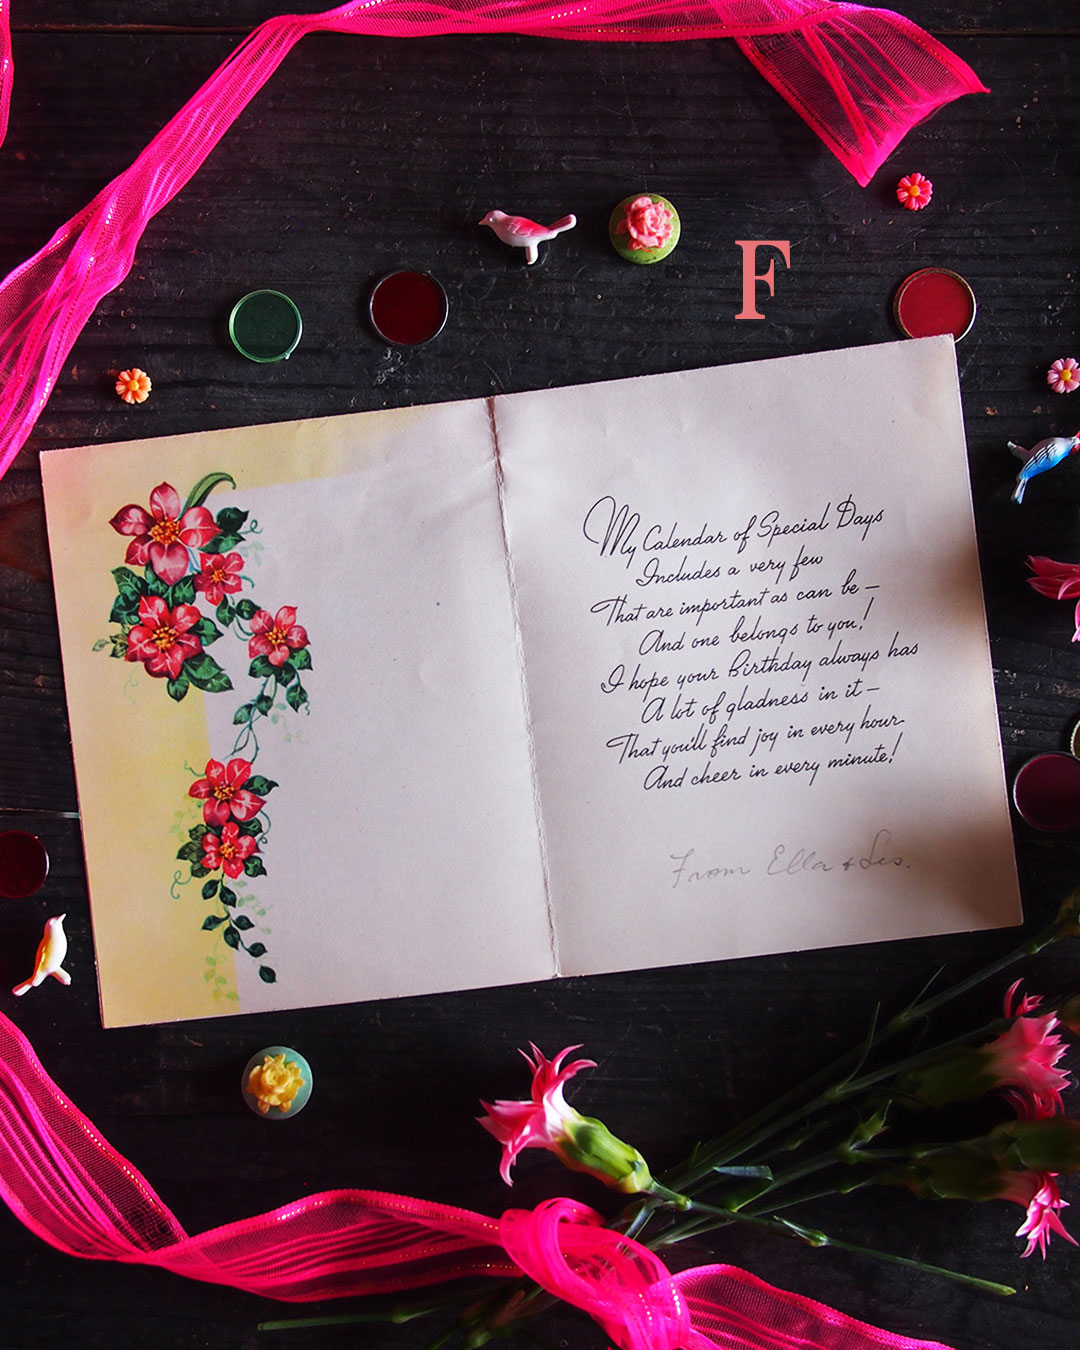 F
My Calendar of Special Days
Includes a very few
That are important as can be —
And one belongs to you!
I hope your Birthday always has
A lot of gladness in it —
That you'll find joy in every hour
And cheer in every minute!
From Ella + Les.